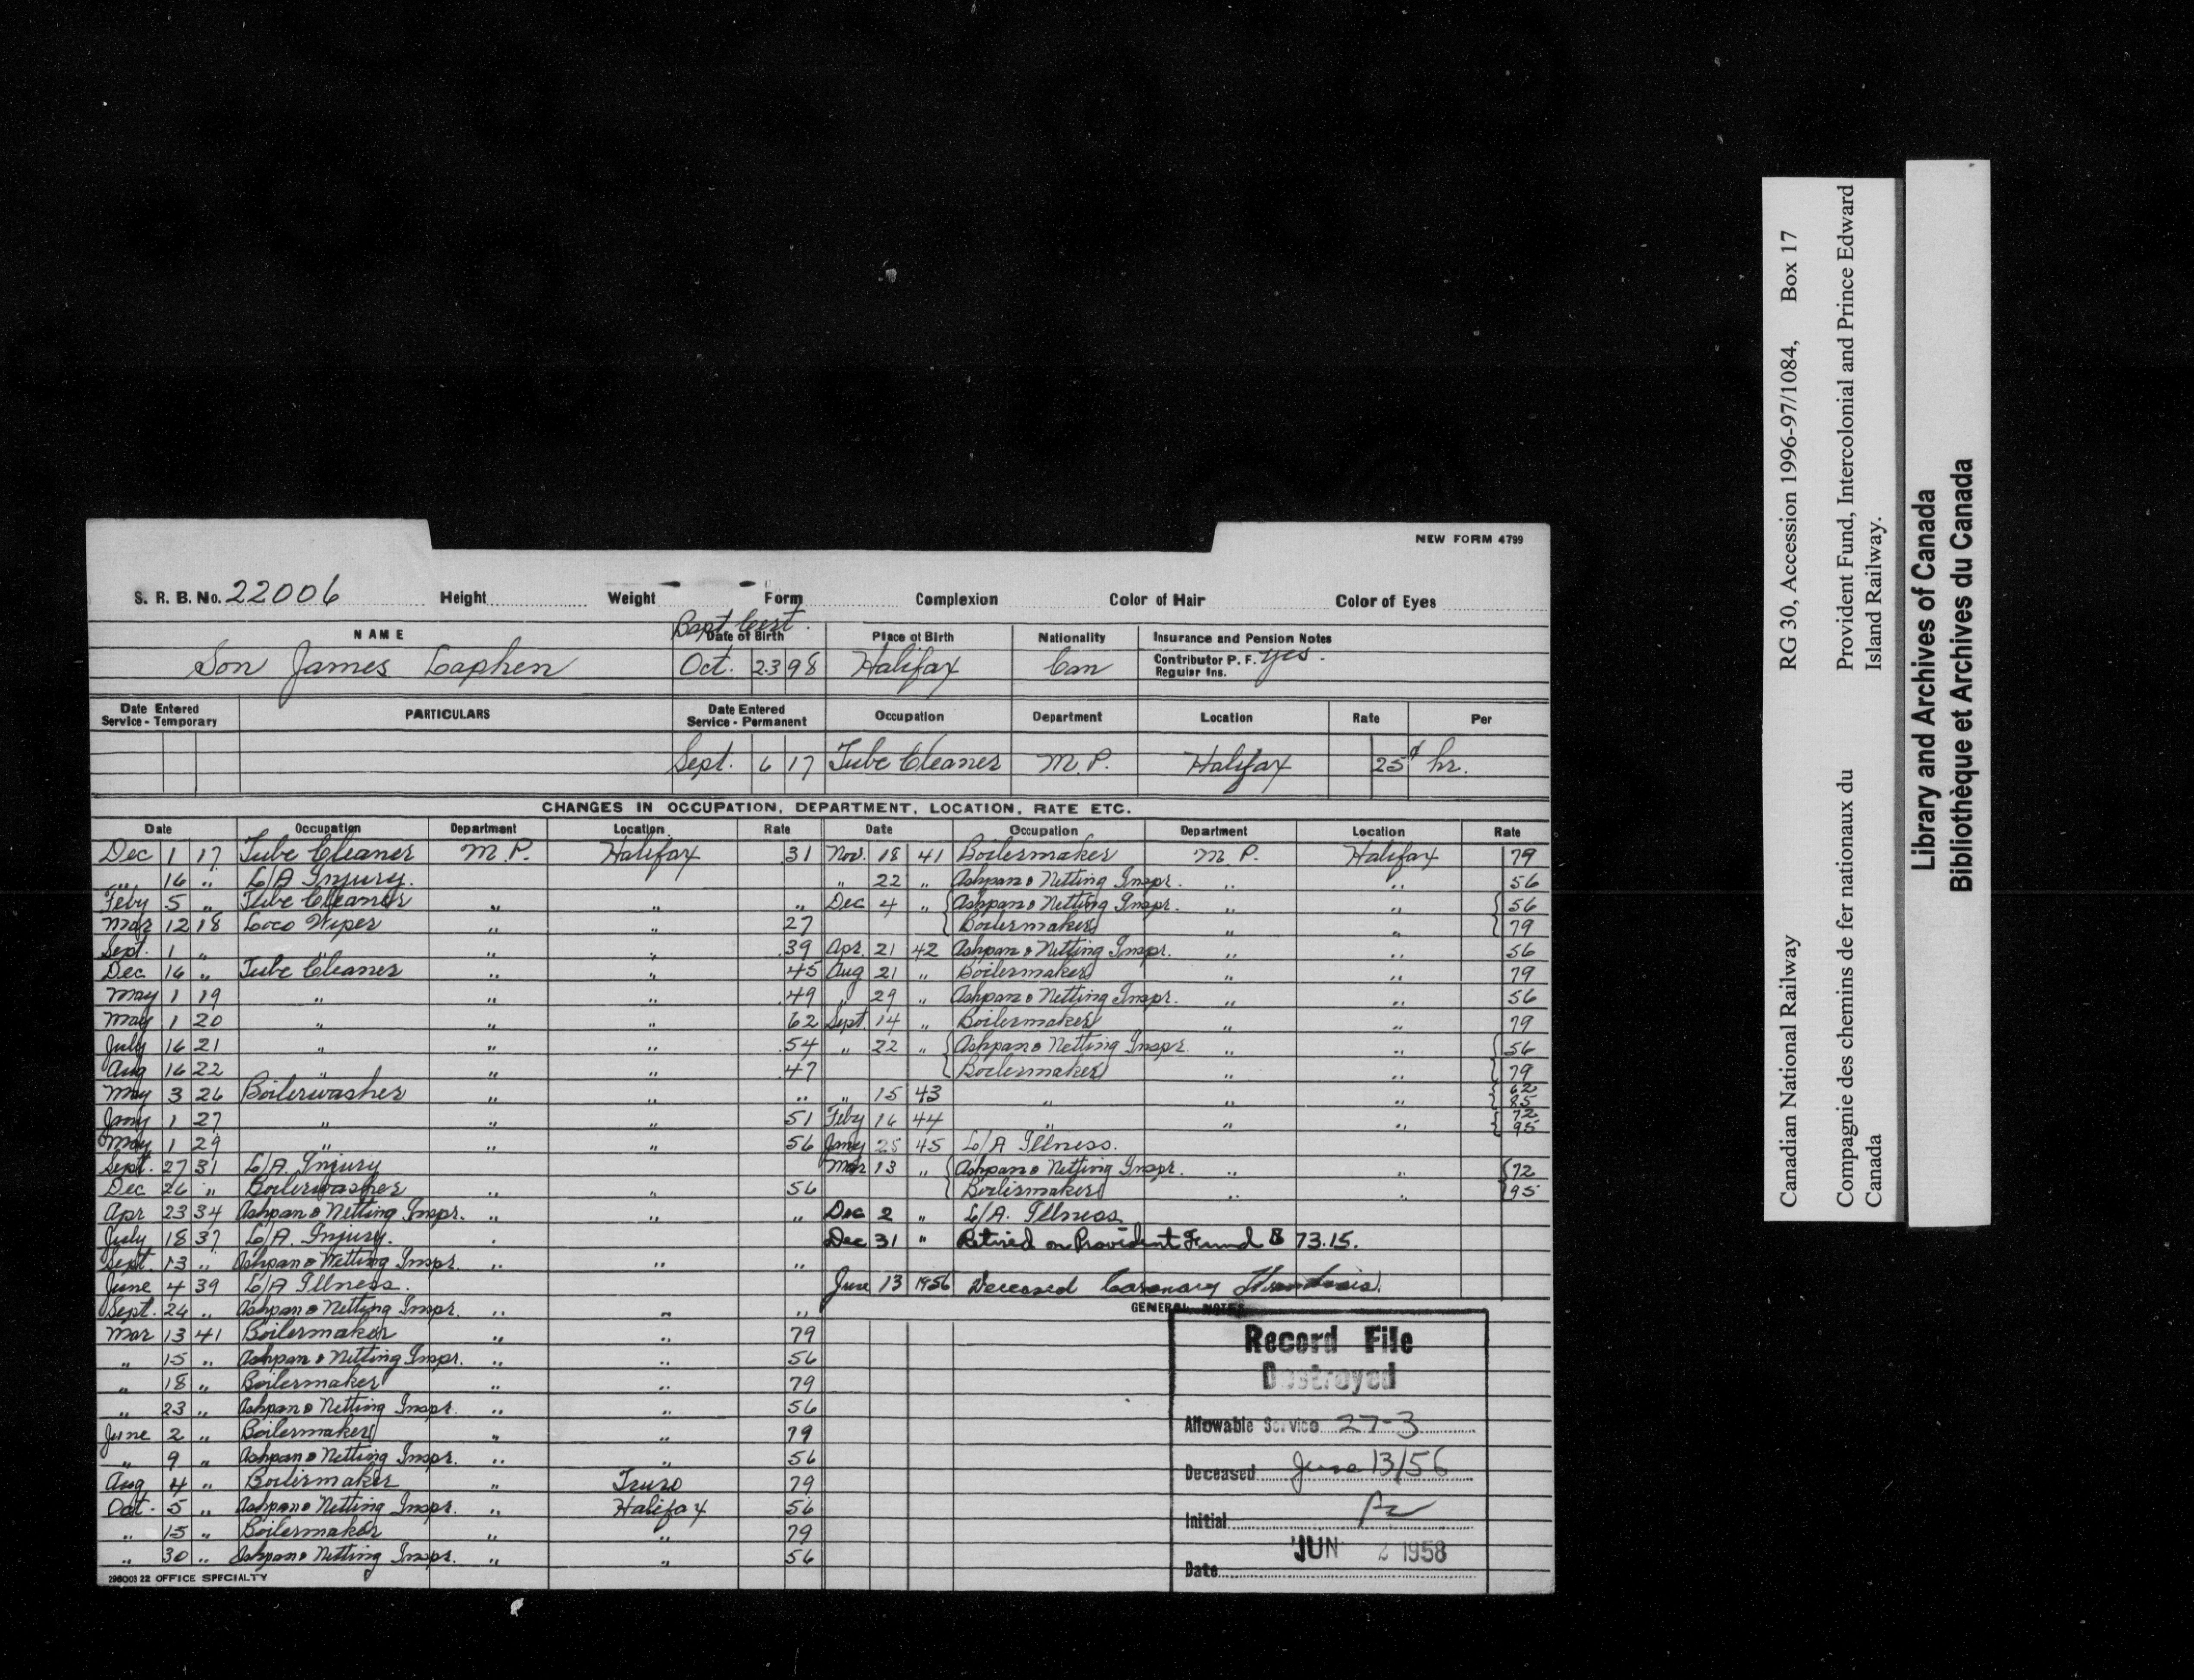 NEW FORM 4799
S. R. B. No. 22006 Height Weight Form Complexion Color of Hair Color of Eyes
Bapt Cert.
NAME Date of Birth Place of Birth Nationality Insurance and Pension Notes
Son James Laphen Oct. 23 98 Halifax Can Contributor P. F. yes.
Regular Ins.
Date Entered Service - Temporary PARTICULARS Date Entered Service - Permanent Occupation Department Location Rate Per
Sept. 6 17 Tube Cleaner M.P. Halifax 25¢ hr.
CHANGES IN OCCUPATION, DEPARTMENT, LOCATION, RATE ETC.
Date Occupation Department Location Rate Date Occupation Department Location Rate
Dec 1 17 Tube Cleaner M.P. Halifax .31 Nov. 18 41 Boilermaker M.P. Halifax 79
" 16 " L/A Injury. " 22 " Ashpan & Netting Inspr. " " 56
Feby 5 " Tube Cleaner " " " Dec 4 " { Ashpan & Netting Inspr. " " { 56
Mar 12 18 Loco Wiper " " 27 { Boilermaker " " { 79
Sept. 1 " " " " .39 Apr. 21 42 Ashpan & Netting Inspr. " " 56
Dec 16 " Tube Cleaner " " 45 Aug 21 " Boilermaker " " 79
May 1 19 " " " .49 " 29 " Ashpan & Netting Inspr. " " 56
May 1 20 " " " 62 Sept. 14 " Boilermaker " " 79
July 16 21 " " " .54 " 22 " { Ashpan & Netting Inspr. " " { 56
Aug 16 22 " " " .47 { Boilermaker " " { 79
May 3 26 Boilerwasher " " " " 15 43 " " " { 62 85
Jany 1 27 " " " 51 Feby 16 44 " " " { 72 95
May 1 29 " " " 56 Jany 25 45 L/A Illness.
Sept. 27 31 L/A. Injury Mar 13 " { Ashpan & Netting Inspr. " " { 72
Dec 26 " Boilerwasher " " 56 { Boilermaker " " { 95
Apr 23 34 Ashpan & Netting Inspr. " " " Dec 2 " L/A. Illness
July 18 37 L/A. Injury. Dec 31 " Retired on Provident Fund $ 73.15.
Sept. 13 " Ashpan & Netting Inspr. " " "
June 4 39 L/A Illness. June 13 1956 Deceased Coronary Thrombosis.
Sept. 24 " Ashpan & Netting Inspr. " " " GENERAL NOTES
Mar 13 41 Boilermaker " " 79
" 15 " Ashpan & Netting Inspr. " " 56
" 18 " Boilermaker " " 79
" 23 " Ashpan & Netting Inspr. " " 56
June 2 " Boilermaker " " 79
" 9 " Ashpan & Netting Inspr. " " 56
Aug 4 " Boilermaker " Truro 79
Oct. 5 " Ashpan & Netting Inspr. " Halifax 56
" 15 " Boilermaker " " 79
" 30 " Ashpan & Netting Inspr. " " 56
Record File
Destroyed
Allowable Service 27-3
Deceased June 13/56
Initial
Date JUN 2 1958
298003 22 OFFICE SPECIALTY
Canadian National Railway RG 30, Accession 1996-97/1084, Box 17
Compagnie des chemins de fer nationaux du Canada
Provident Fund, Intercolonial and Prince Edward Island Railway.
Library and Archives of Canada
Bibliothèque et Archives du Canada